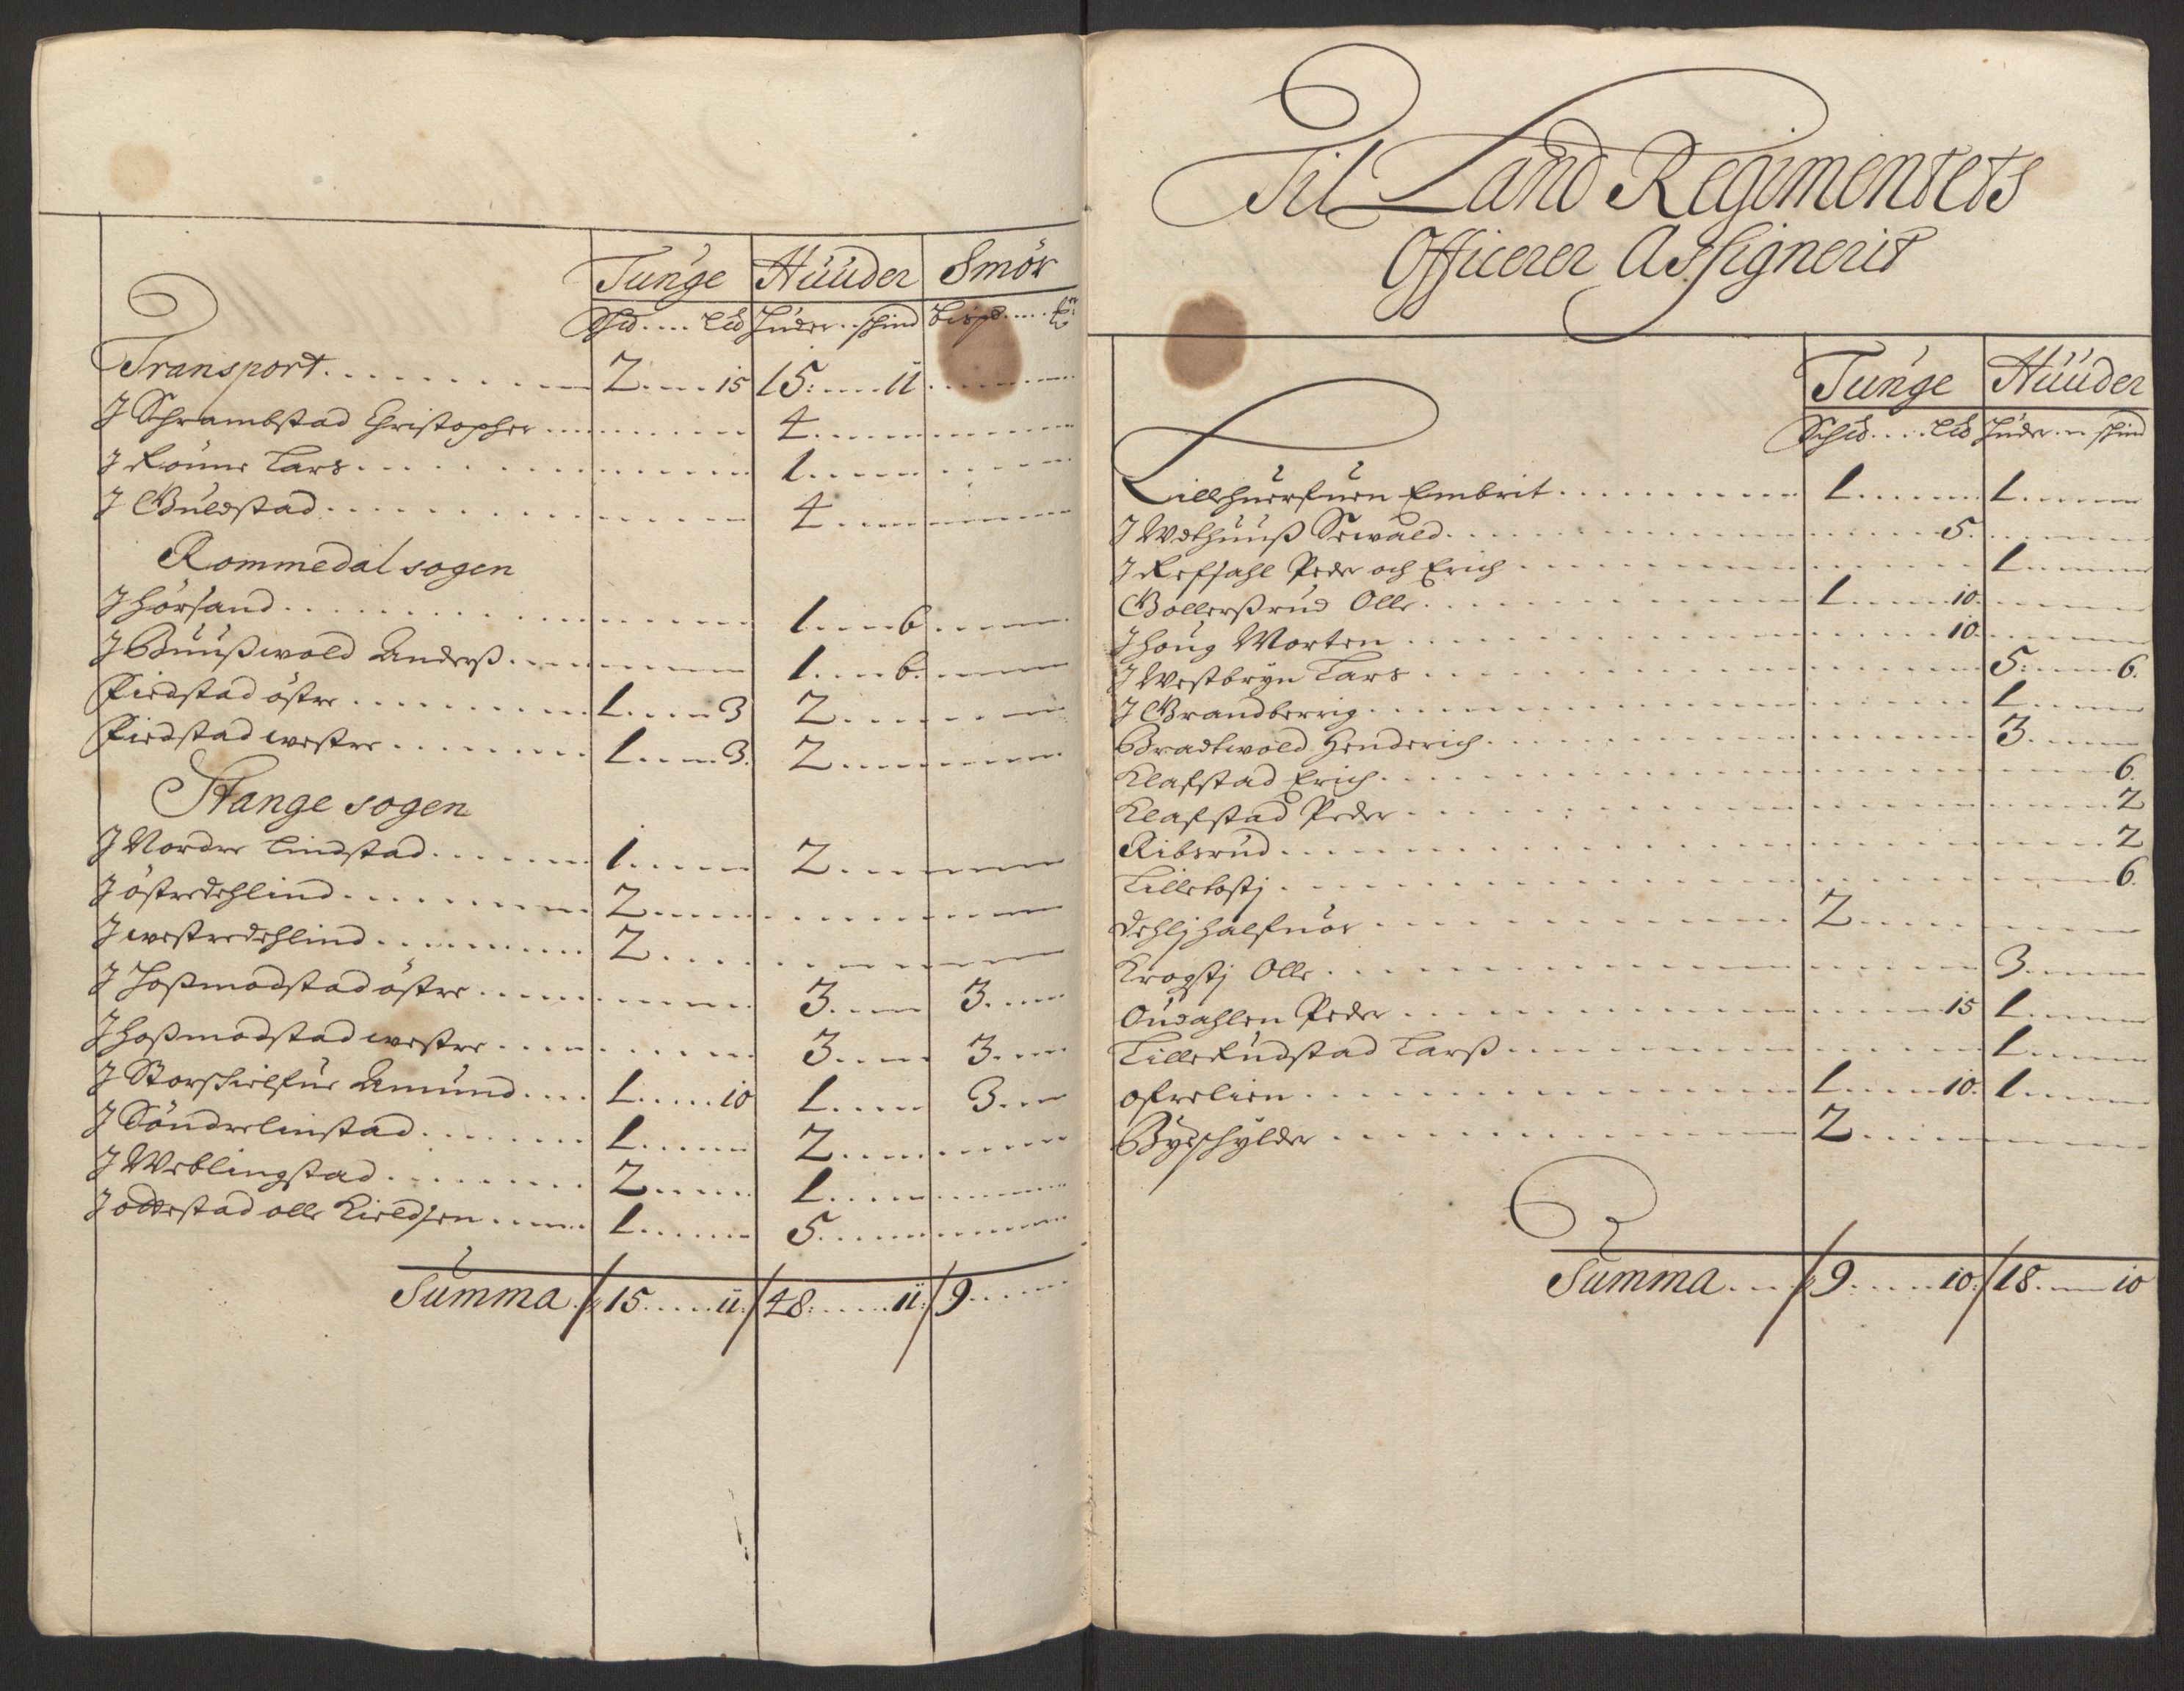 Tunge Huuder Smör
Schd .... Lid Huder .. schind bispd .... ℔
Transport . . . 2 .... 15 15: .... 11
J Schrambstad Christopher . . . 4
J Rönne Lars . . . 1
J Guldstad . . . 4
Rommedal sogen
J hörsand . . . 1 .... 6
J Buuswold Anderß . . . 1 .... 6
Fiedstad östre . . . 1 .... 3 2
Fiedstad westre . . . 1 .... 3. 2
Stange sogen
J Nordre Lindstad . . . 1 2
J östredehlind . . . 2
J westredehlind . . . 2
J Hoßmodstad östre . . . 3 3.
J hoßmodstad westre . . . 3 3.
J Storschielfue Amund . . . 1 .... 10 1 3
J Söndrelinstad . . . 1 2
J Weblingstad . . . 2 1
J ottestad olle Kieldsen . . . 1 5
Summa 15 .... 11: 48: .... 11: 9
Til Land Regimentets
Officerer Assignerit
Tunge Huuder
Schd .... Lid Huder .. schind
Lillehuerfuen Embrit . . . 1 1
J Wethuuß Sewald . . . 5.
J Refsahl Peder och Erich . . . 1
Gollerßrud Olle . . . 1 .... 10.
J houg Morten . . . 10.
J Westbryn Lars . . . 5: .... 6.
J Grandberrig . . . 1
Bradtwold Henderich . . . 3
Klafstad Erich . . . 6.
Klafstad Peder . . . 2
Ribsrud . . . 2
Lilletostj . . . 6.
dehlj halfuor . . . 2
Krogstj Olle . . . 3
Oudahlen Peder . . . 15 1
Lille Rudstad Larß . . . 1
ofrelien . . . 1 .... 10. 1
Bydschylder . . . 2
Summa 9 .... 10: 18 .... 10